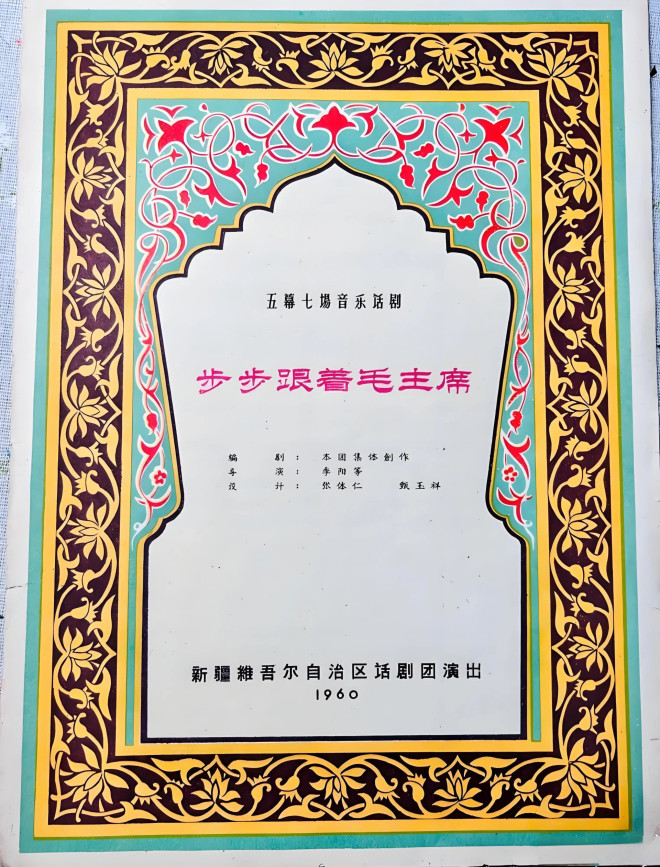 五幕七場音乐话剧
步步跟着毛主席
編 剧： 本团集体創作
导 演： 李阳等
設 計： 张体仁 甄玉祥
新疆維吾尔自治区话剧团演出
1960